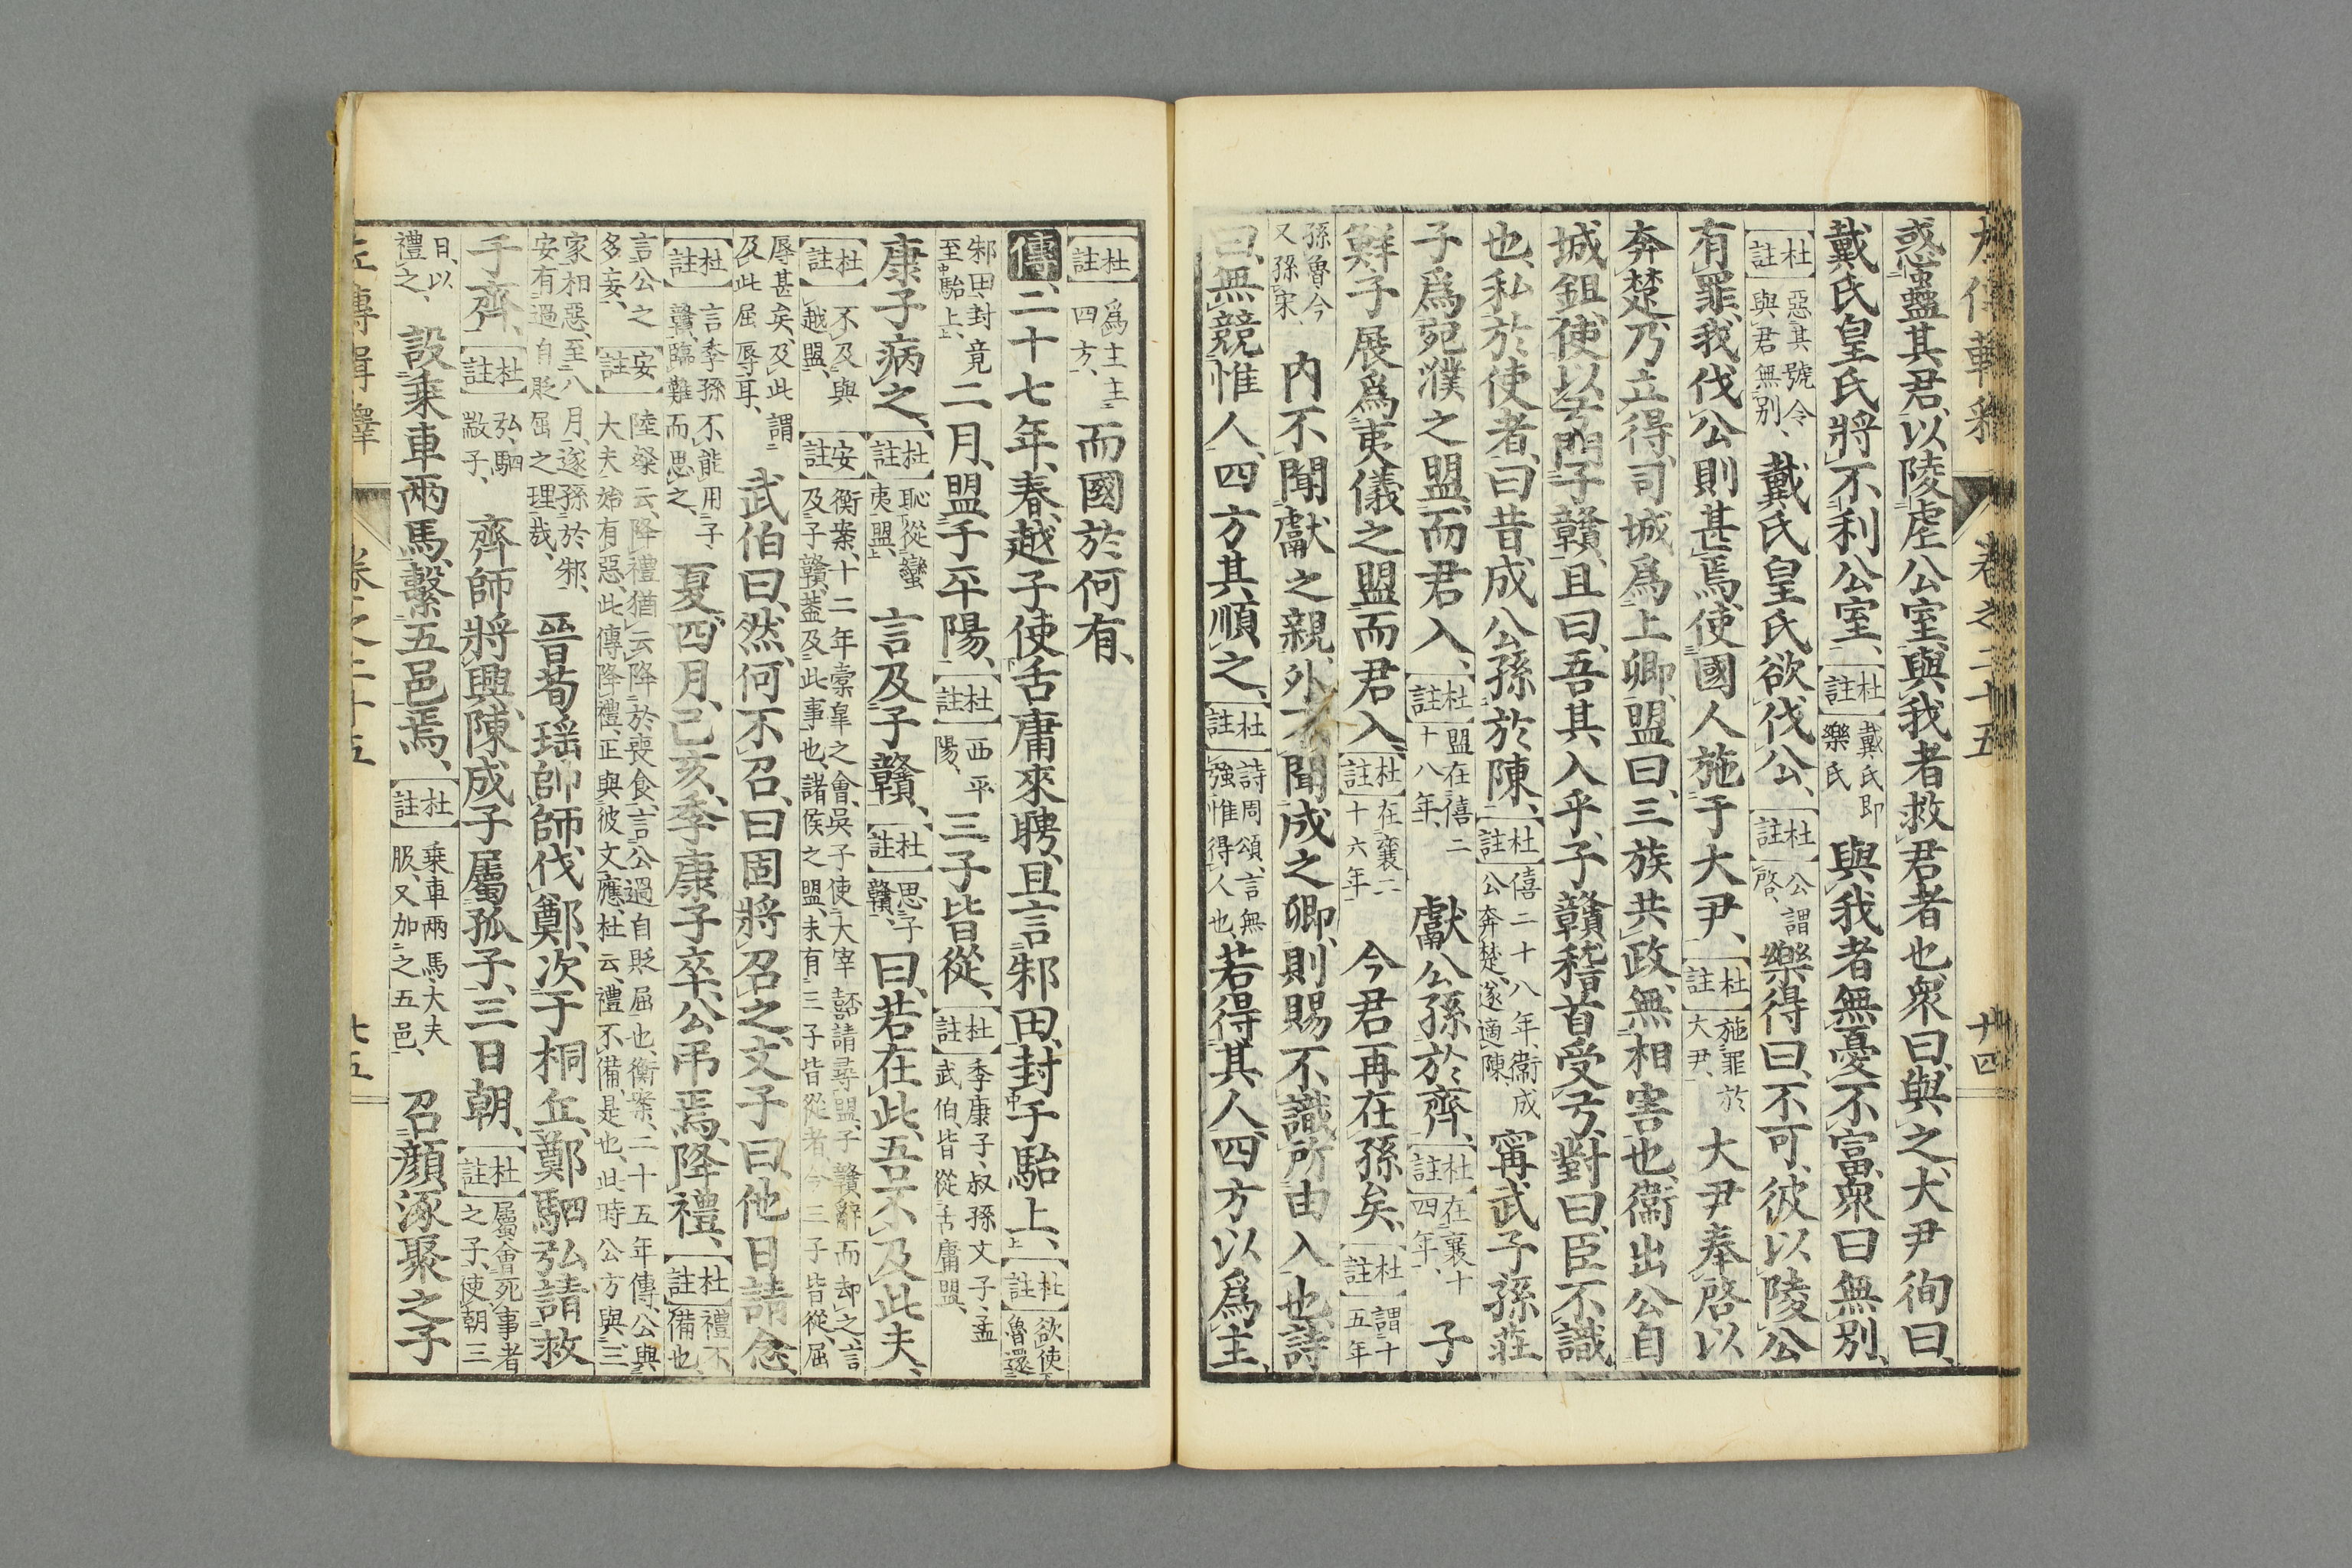 左傳輯釋 卷之二十五 廿四
惑蠱其君、以陵虐公室、與我者救君者也、衆曰、與之、大尹徇曰、
戴氏皇氏將不利公室、杜註戴氏即樂氏與我者無憂不富、衆曰無別、
杜註惡其號令與君無別、戴氏皇氏欲伐公、杜註公謂啓、樂得曰、不可、彼以陵公
有罪、我伐公則甚焉、使國人施于大尹、杜註施罪於大尹、大尹奉啓以
奔楚、乃立得、司城爲上卿、盟曰、三族共政、無相害也、衞出公自
城鉏、使以弓問子贛、且曰、吾其入乎、子贛稽首受弓、對曰、臣不識
也、私於使者、曰昔成公孫於陳、杜註僖二十八年、衞成公奔楚、遂適陳、甯武子孫莊
子爲宛濮之盟、而君入、杜註盟在僖二十八年、獻公孫於齊、杜註在襄十四年、子
鮮、子展爲夷儀之盟而君入、杜註在襄二十六年今君再在孫矣、杜註謂十五年
孫魯今又孫宋、內不聞獻之親、外不聞成之卿、則賜不識所由入也、詩
曰、無競惟人、四方其順之、杜註詩周頌、言無強惟得人也、若得其人、四方以爲主、
杜註爲主主四方、而國於何有、
傳、二十七年、春、越子使舌庸來聘、且言邾田、封于駘上、杜註欲使魯還
邾田、封竟至駘上、二月、盟于平陽、杜註西平陽、三子皆從、杜註季康子、叔孫文子、孟武伯、皆從舌庸盟、
康子病之、杜註恥從蠻夷盟、言及子贛、杜註思子贛、曰、若在此、吾不及此夫、
杜註不及與越盟、安註衡案、十二年橐皐之會、吳子使大宰嚭請尋盟、子贛辭而却之、言及子贛、蓋及此事也、諸侯之盟、未有三子皆從者、今三子皆從、屈
辱甚矣、及此謂及此屈辱耳、武伯曰、然、何不召、曰固將召之、文子曰、他日請念、
杜註言季孫不能用子贛、臨難而思之、夏、四月、己亥、季康子卒、公弔焉、降禮、杜註禮不備也、
言公之多妄、安註陸粲云、降禮猶云降於喪食、言公過自貶屈也、衡案、二十五年傳、公與大夫始有惡、此傳降禮、正與彼文應、杜云、禮不備、是也、此時公方與三
家相惡、至八月、遂孫於邾、安有過自貶屈之理哉、晉荀瑤帥師伐鄭、次于桐丘、鄭駟弘請救
于齊、杜註弘、駟歂子、齊師將興、陳成子屬孤子、三日朝、杜註屬會死事者之子、使朝三
日、以禮之、設乘車兩馬、繫五邑焉、杜註乘車兩馬、大夫服、又加之五邑、召顏涿聚之子
左傳輯釋 卷之二十五 廿五